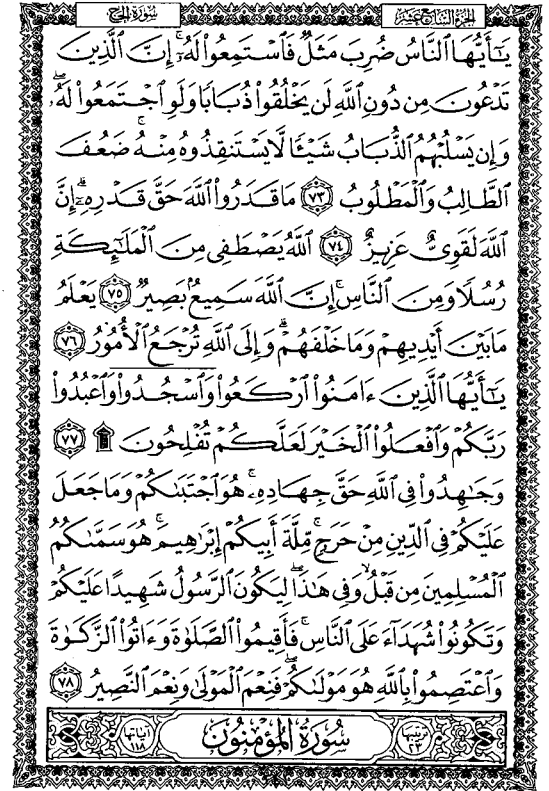 سُورَةُ الحَجّ
الجُزءُ السَّابِعُ عَشَرَ
يَٰٓأَيُّهَا ٱلنَّاسُ ضُرِبَ مَثَلٌ فَٱسْتَمِعُوا۟ لَهُۥٓ ۚ إِنَّ ٱلَّذِينَ
تَدْعُونَ مِن دُونِ ٱللَّهِ لَن يَخْلُقُوا۟ ذُبَابًا وَلَوِ ٱجْتَمَعُوا۟ لَهُۥ ۖ
وَإِن يَسْلُبْهُمُ ٱلذُّبَابُ شَيْـًٔا لَّا يَسْتَنقِذُوهُ مِنْهُ ۚ ضَعُفَ
ٱلطَّالِبُ وَٱلْمَطْلُوبُ ﴿٧٣﴾ مَا قَدَرُوا۟ ٱللَّهَ حَقَّ قَدْرِهِۦٓ ۗ إِنَّ
ٱللَّهَ لَقَوِىٌّ عَزِيزٌ ﴿٧٤﴾ ٱللَّهُ يَصْطَفِى مِنَ ٱلْمَلَٰٓئِكَةِ
رُسُلًا وَمِنَ ٱلنَّاسِ ۚ إِنَّ ٱللَّهَ سَمِيعٌۢ بَصِيرٌ ﴿٧٥﴾ يَعْلَمُ
مَا بَيْنَ أَيْدِيهِمْ وَمَا خَلْفَهُمْ ۗ وَإِلَى ٱللَّهِ تُرْجَعُ ٱلْأُمُورُ ﴿٧٦﴾
يَٰٓأَيُّهَا ٱلَّذِينَ ءَامَنُوا۟ ٱرْكَعُوا۟ وَٱسْجُدُوا۟ وَٱعْبُدُوا۟
رَبَّكُمْ وَٱفْعَلُوا۟ ٱلْخَيْرَ لَعَلَّكُمْ تُفْلِحُونَ ۩ ﴿٧٧﴾
وَجَٰهِدُوا۟ فِى ٱللَّهِ حَقَّ جِهَادِهِۦ ۚ هُوَ ٱجْتَبَىٰكُمْ وَمَا جَعَلَ
عَلَيْكُمْ فِى ٱلدِّينِ مِنْ حَرَجٍ ۚ مِّلَّةَ أَبِيكُمْ إِبْرَٰهِيمَ ۚ هُوَ سَمَّىٰكُمُ
ٱلْمُسْلِمِينَ مِن قَبْلُ وَفِى هَٰذَا لِيَكُونَ ٱلرَّسُولُ شَهِيدًا عَلَيْكُمْ
وَتَكُونُوا۟ شُهَدَآءَ عَلَى ٱلنَّاسِ ۚ فَأَقِيمُوا۟ ٱلصَّلَوٰةَ وَءَاتُوا۟ ٱلزَّكَوٰةَ
وَٱعْتَصِمُوا۟ بِٱللَّهِ هُوَ مَوْلَىٰكُمْ ۖ فَنِعْمَ ٱلْمَوْلَىٰ وَنِعْمَ ٱلنَّصِيرُ ﴿٧٨﴾
ترتيبها ٢٣ سُورَةُ المُؤْمِنُون آياتها ١١٨